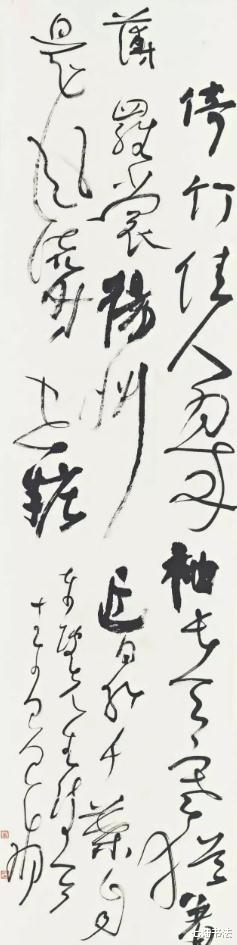 倚竹佳人翠袖長天寒猶著
薄羅裳揚州近日紅千葉自
是風流時世粧
東坡先生詩